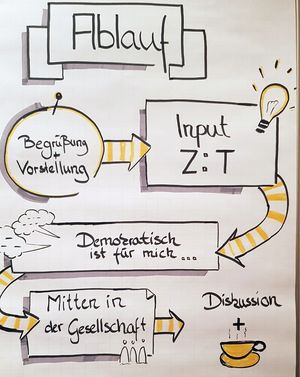 Ablauf
Begrüßung
+
Vorstellung
Input
Z:T
Demokratisch
ist für mich...
Mitten in
der Gesellschaft
Diskussion
+